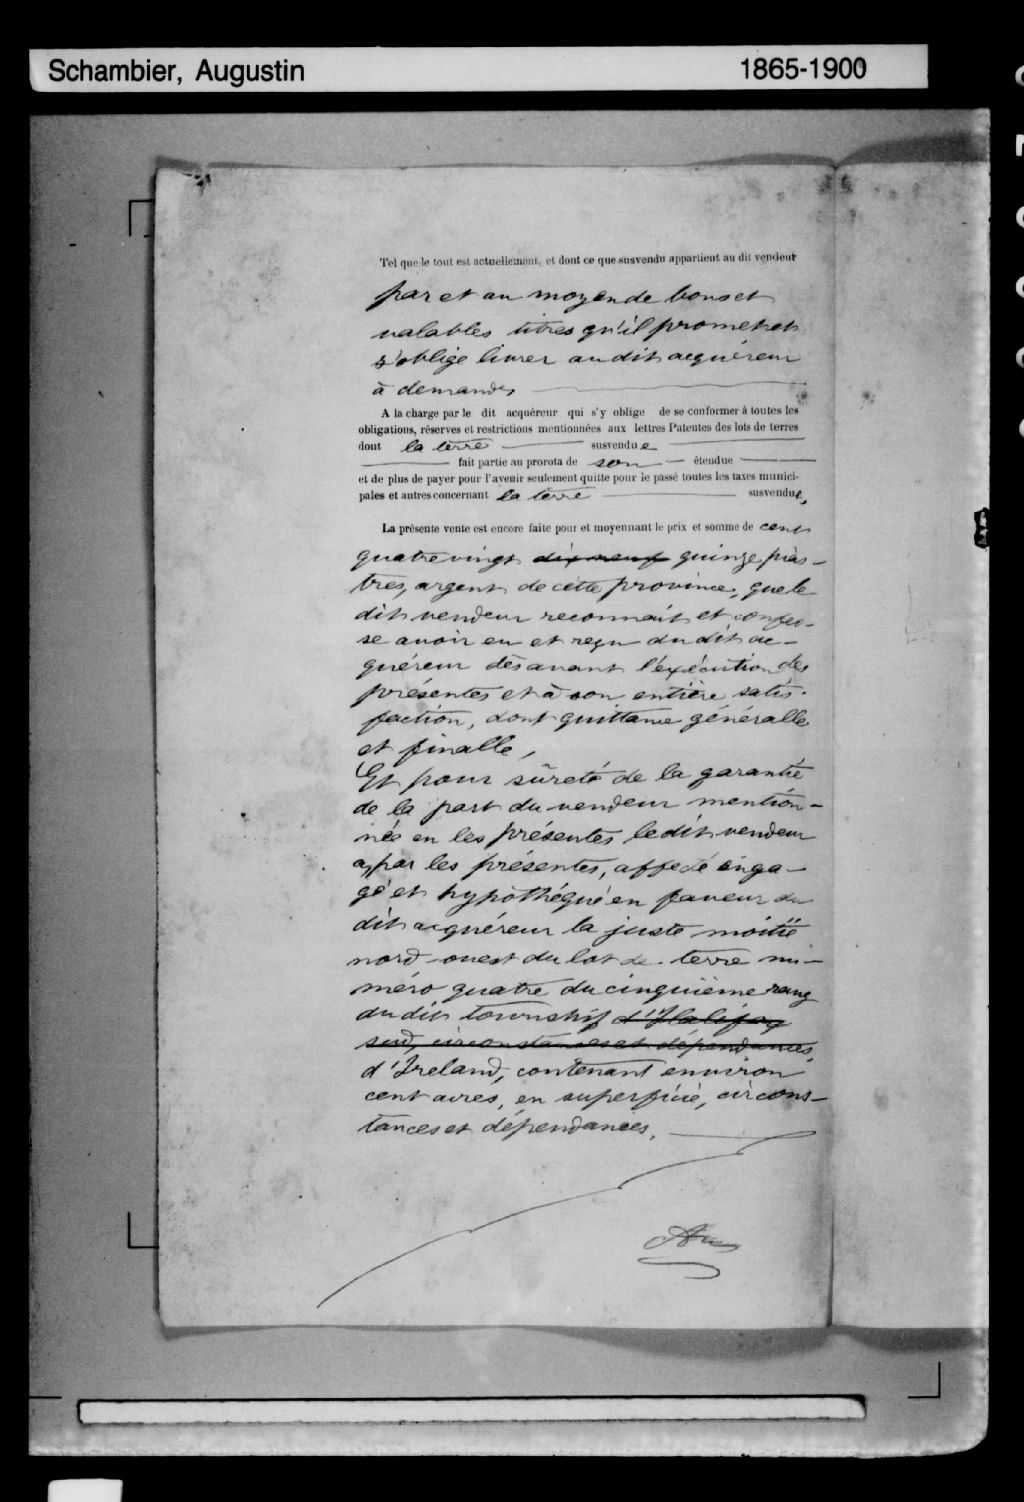 Schambier, Augustin 1865-1900
Tel que le tout est actuellement, et dont ce que susvendu appartient au dit vendeur
par et au moyen de bons et
valables titres qu'il promet et
s'oblige livrer au dit acquéreur
à demande,
A la charge par le dit acquéreur qui s'y oblige de se conformer à toutes les
obligations, réserves et restrictions mentionnées aux lettres Patentes des lots de terres
dont la terre susvendue
fait partie au prorota de son étendue
et de plus de payer pour l'avenir seulement quitte pour le passé toutes les taxes munici-
pales et autres concernant la terre susvendue,
La présente vente est encore faite pour et moyennant le prix et somme de cent
quatre vingt dix neuf quinze pias-
tres, argent de cette province, que le
dit vendeur reconnait et confes-
se avoir eu et reçu du dit ac-
quéreur dès avant l'exécution des
présentes et à son entière satis-
faction, dont quittance généralle
et finalle,
Et pour sûreté de la garantie
de la part du vendeur mention-
née en les présentes le dit vendeur
a, par les présentes, affecté enga-
gé et hypothéqué en faveur du
dit acquéreur la juste moitié
nord-ouest du lot de terre nu-
méro quatre du cinquième rang
du dit township d'Halifax
sud, circonstances et dépendances,
d'Ireland, contenant environ
cent acres, en superficie, circons-
tances et dépendances.